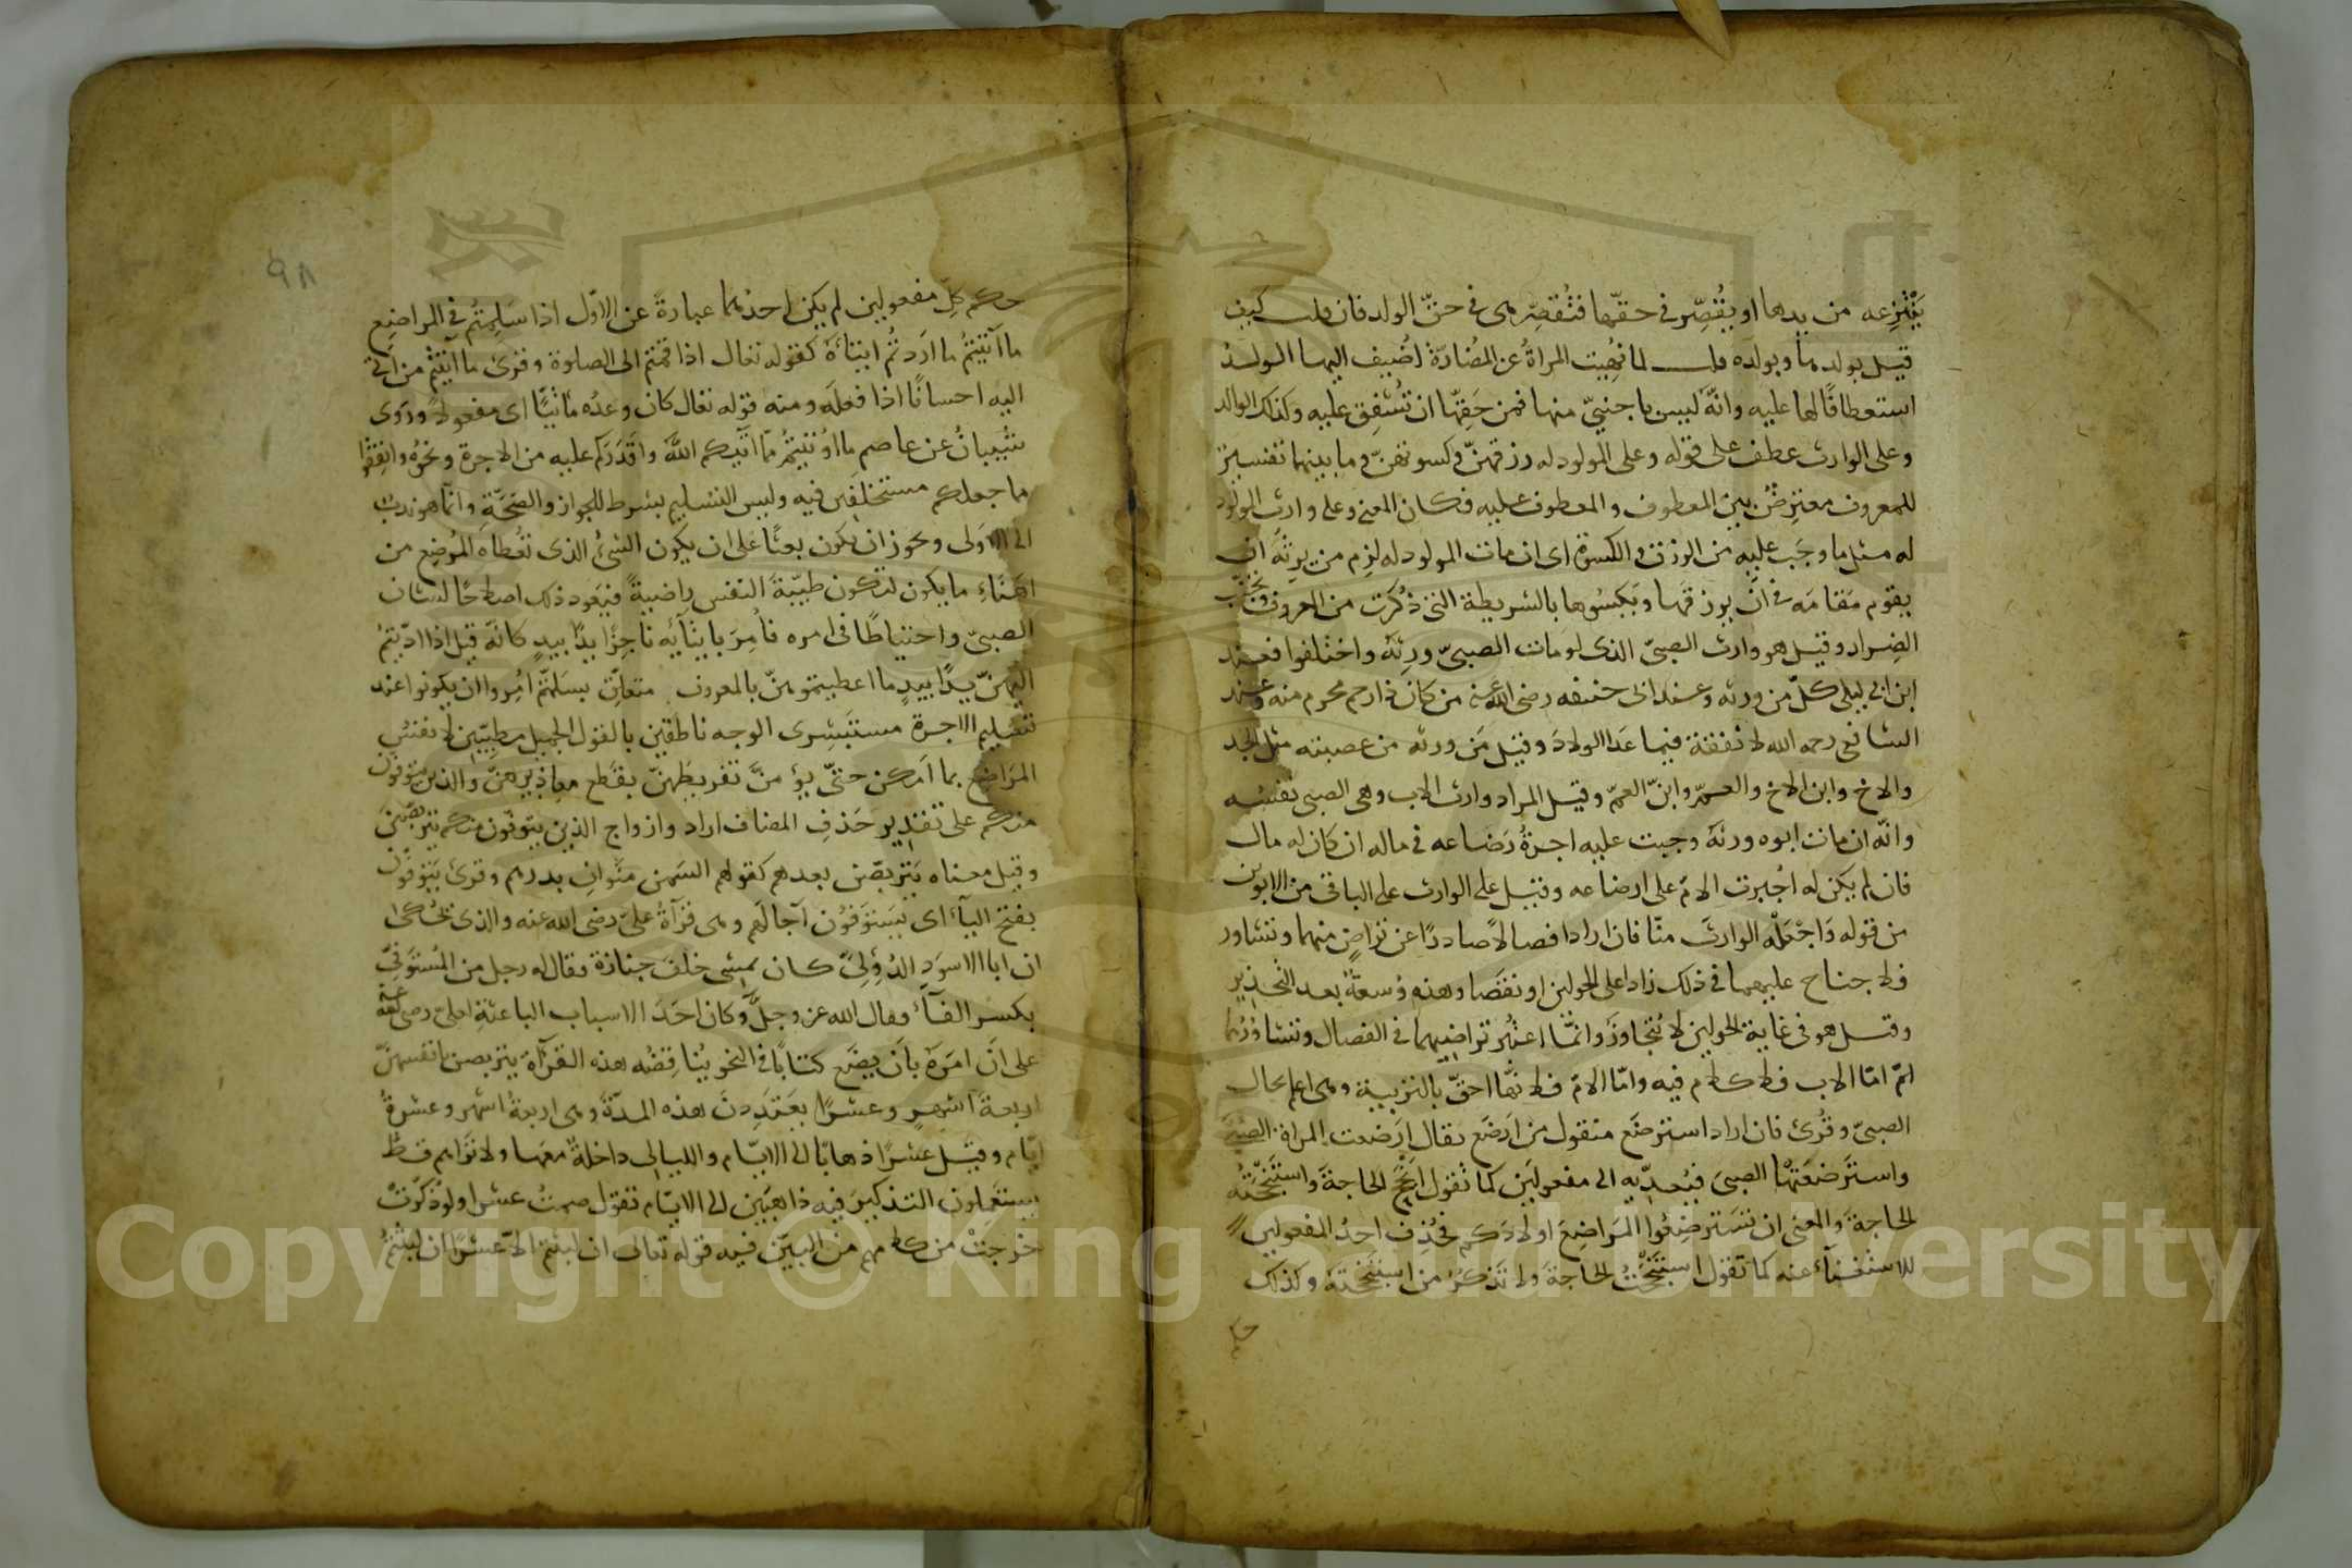 ينتزعه من يدها او يقصّر فى حقّها فتقصّر هى فى حقّ الولد فان قلت كيف
قيل بولدها وبولده قلت لما نُهيت المراةُ عن المُضارّة اُضيف اليها الولدُ
استعطافًا لها عليه وانّه ليس باجنبيّ منها فمن حَقّها ان تُشفِق عليه وكذلك الوالد
وعلى الوارث عطف على قوله وعلى المولود له رزقهنّ وكسوتهنّ وما بينهما تفسير
للمعروف معترِضٌ بين المعطوف والمعطوف عليه فكان المعنى وعلى وارث المولود
له مثل ما وجَب عليه من الرزق والكسوة اى ان مات المولود له لزم من يرثه ان
يقوم مَقامَه فى ان يرزقَها ويَكسُوها بالشريطة التى ذُكرت من المعروف وتجنّب
الضِرار وقيل هو وارث الصبىّ الذى لو مات الصبىّ ورثه واختلفوا فعند
ابن ابى ليلى كلّ من ورثه وعند ابى حنيفه رضى الله عنه من كان ذا رحم محرم منه وعند
الشافعى رحمه الله لا نفقة فيما عَدا الولادَ وقيل مَن ورثه من عصبته مثل الجد
والاخ وابن الاخ والعمّ وابن العمّ وقيل المراد وارث الاب وهى الصبى نفسه
وانّه ان مات ابوه ورثهُ وجبت عليه اجرةُ رَضاعه فى ماله ان كان له مال
فان لم يكن له اُجبرت الامّ على ارضاعه وقيل على الوارث على الباقى من الابوين
من قوله وَاجْعَلْه الوارثَ منّا فان ارادا فصالًا صادرًا عن تراضٍ منهما وتشاور
فلا جناح عليهما فى ذلك زادا على الحولين او نقَصا وهذه توسعةٌ بعد التحذير
وقيل هو فى غاية الحولين لا يُتجاوَز وانّما اعتُبر تراضيهما فى الفصال وتشاوُرُهما
امّا الاب فلا كلام فيه وامّا الامّ فلانّها احقّ بالتربية وهى اعلم بحال
الصبىّ وقُرئ فان اراد استرضَع منقول من ارضَع يقال ارضعت المراة الصبىَّ
واسترضعَتْها الصبىَ فتُعدّيه الى مفعولَين كما تقول انجَحَ الحاجةَ واستَنجَحتُه
الحاجةَ والمعنى ان تسترضِعُوا المَراضِعَ اولادَكم فحُذِف احدُ المفعولين
للاستغنآء عنه كما تقول استَنجَحتُ الحاجةَ ولا تَذكرُ من استنجَحتَه وكذلك
حكم
٩٨
حكم كلّ مفعولين لم يكن احدُهما عبارةً عن الاوّل اذا سَلمتُم فى المراضِع
ما آتَيتُم ما اَردتُم ايتآءَهُ كقوله تعالى اذا قمتم الى الصلوة وقرئ ما اَتيتُم من اتى
اليه احسانًا اذا فعلَه ومنه قوله تعالى كان وعدُه مَأتيًّا اى مفعولا ورَوى
شَيبانُ عن عاصم ما اُوتيتُم ما آتيكم اللهُ واقدَرَكم عليه من الاجرة ونحوُه وانفِقُوا
مما جعلكم مستخلَفين فيه وليس التسليم بشرط للجواز والصِحّةِ وانّما هو ندبٌ
الى الاَولى ويجوز ان يكون بعثًا على ان يكون الشئُ الذى تُعطاه المُرضِع من
اَهنَاءِ ما يكون لتكون طيّبةَ النفس راضيةً فيَعود ذلك اصلاحًا لشان
الصبىّ واحتياطًا فى امره فاُمِرَ بايتآئه ناجِزًا يدًا بيدٍ كانّه قيل اذا ادّيتُمُ
اليهنّ يدًا بيدٍ ما اعطيتموهنّ بالمعروف متعلّق بسَلمتم اُمِروا ان يكونوا عند
تسليم الاجرة مستبشِرى الوجه ناطقين بالقول الجميل مطيّبين لانفسُ
المَراضع بما امكن حتّى يؤمنَ تفريطُهنّ بقطع معاذيرهنّ والذين يتوفون
منكم على تقدير حَذفِ المضاف اراد وازواج الذين يتوفّون منكم يتربّصن
وقيل معناه يتربّصن بعدهم كقولهم السَمن مَنَوانِ بدرهم وقرئ يَتوفّون
بفتح اليآء اى يَستوَفُون آجالهم وهى قرآةُ علىّ رضى الله عنه والذى يُحكى
ان ابا الاسوَد الدُؤلىّ كان يمشى خلفَ جنازة فقال له رجل من المُتوَفّي
بكسر الفآء فقال الله عز وجلّ وكان احَدَ الاسباب الباعثةِ لعلىّ رضى الله عنه
على اَن امَرَه باَن يضَع كتابًا فى النحو يُناقِضُه هذه القرآة يتربصن بانفسهنّ
اربعةَ اشهرٍ وعشرًا يعتَدِدنَ هذه المدّةَ وهى اربعةُ اشهر وعشرةُ
ايّام وقيل عشرًا ذهابًا الى الايّام والليالى داخلةٌ معَها ولا تَراهم قطّ
يستعمِلون التذكيرَ فيه ذاهبَين الى الايّام تقول صمتُ عشرا ولو ذكَّرتَ
خرجتَ من كلامهم من البيّن فيه قوله تعالى ان لبثتم الّا عشرًا ان لبثتُمُ
Copyright © King Saud University